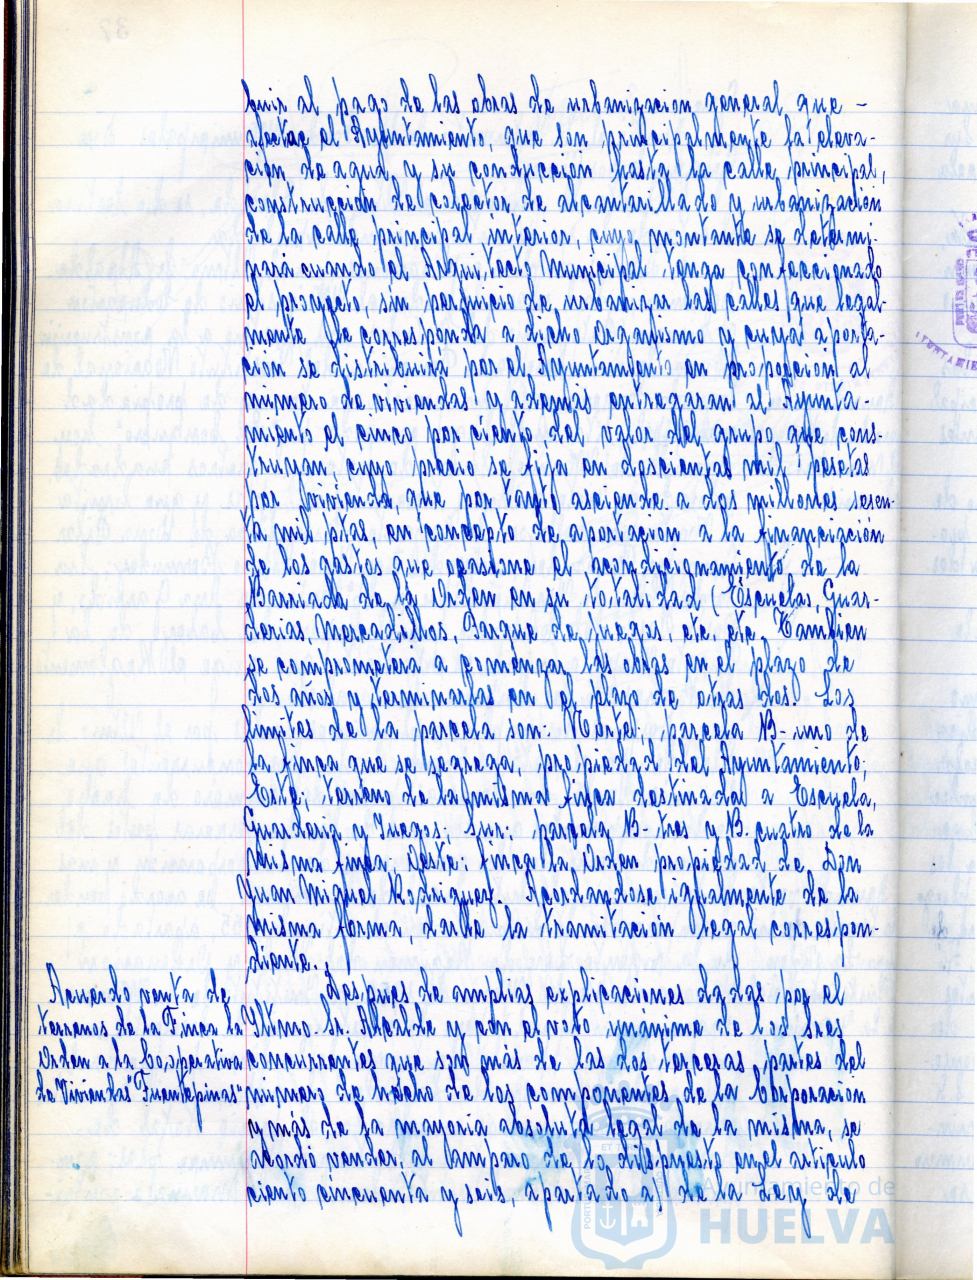 buir al pago de las obras de urbanizacion general que -
afectae el Ayuntamiento, que son principalmente la eleva-
ción de agua y su conducción hasta la calle principal,
construcción de colector de alcantarillado y urbanización
de la calle principal interior, cuyo montante se determi-
nará cuando el Arquitecto Municipal tenga confeccionado
el proyecto, sin perjuicio de urbanizar las calles que legal-
mente le corresponda a dicho Organismo y cuya aporta-
ción se distribuirá por el Ayuntamiento en proporción al
número de viviendas y además entregaran al Ayunta-
miento el cinco por ciento del valor del grupo que cons-
truyan, cuyo precio se fija en doscientas mil pesetas
por vivienda, que por tanto asciende a dos millones sesen-
ta mil ptas, en concepto de aportacion a la financiación
de los gastos que ocasione el acondicionamiento de la
Barriada de la Orden en su totalidad (Escuelas, Guar-
derias, Mercadillos, Parque de juegos, etc, etc. Tambien
se comprometera a comenzar las obras en el plazo de
dos años y terminarlas en el plazo de otros dos. Los
limites de la parcela son: Norte, parcela B- uno de
la finca que se segrega, propiedad del Ayuntamiento;
Este; terreno de la misma finca destinada a Escuela,
Guarderia y Juegos; Sur; parcela B- tres y B. cuatro de la
misma finca; Oeste: finca la Orden propiedad de Don
Juan Miguel Rodriguez. Acordandose igualmente de la
misma forma, darle la tramitación legal correspon-
diente.
Acuerdo venta de
terrenos de la Finca la
Orden a la Cooperativa
de Viviendas "Fuentepinas"
Despues de amplias explicaciones dadas por el
Iltmo. Sr. Alcalde y con el voto unánime de los Sres
concurrentes que son más de las dos terceras partes del
numero de hecho de los componentes de la Corporación
y más de la mayoria absoluta legal de la misma, se
acordó vender, al amparo de lo dispuesto en el articulo
ciento cincuenta y seis, apartado a) de la Ley de
Ayuntamiento de
HUELVA